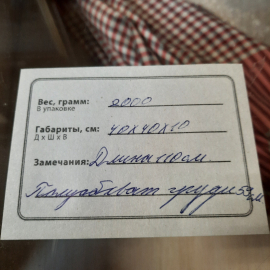 Вес, грамм: 2000
В упаковке
Габариты, см: 40х40х10
Д х Ш х В
Замечания: Длина 110 см.
Полуобхват груди 53 см